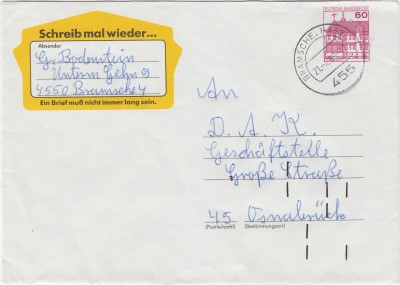 Schreib mal wieder...
Absender
G. Bodenstein
Unterm Gehn 9
4550 Bramsche 4
Ein Brief muß nicht immer lang sein.
DEUTSCHE BUNDESPOST
60
BRAMSCHE
21
455
An
D. A. K.
Geschäftsstelle
Große Straße
45 Osnabrück
(Postleitzahl) (Bestimmungsort)